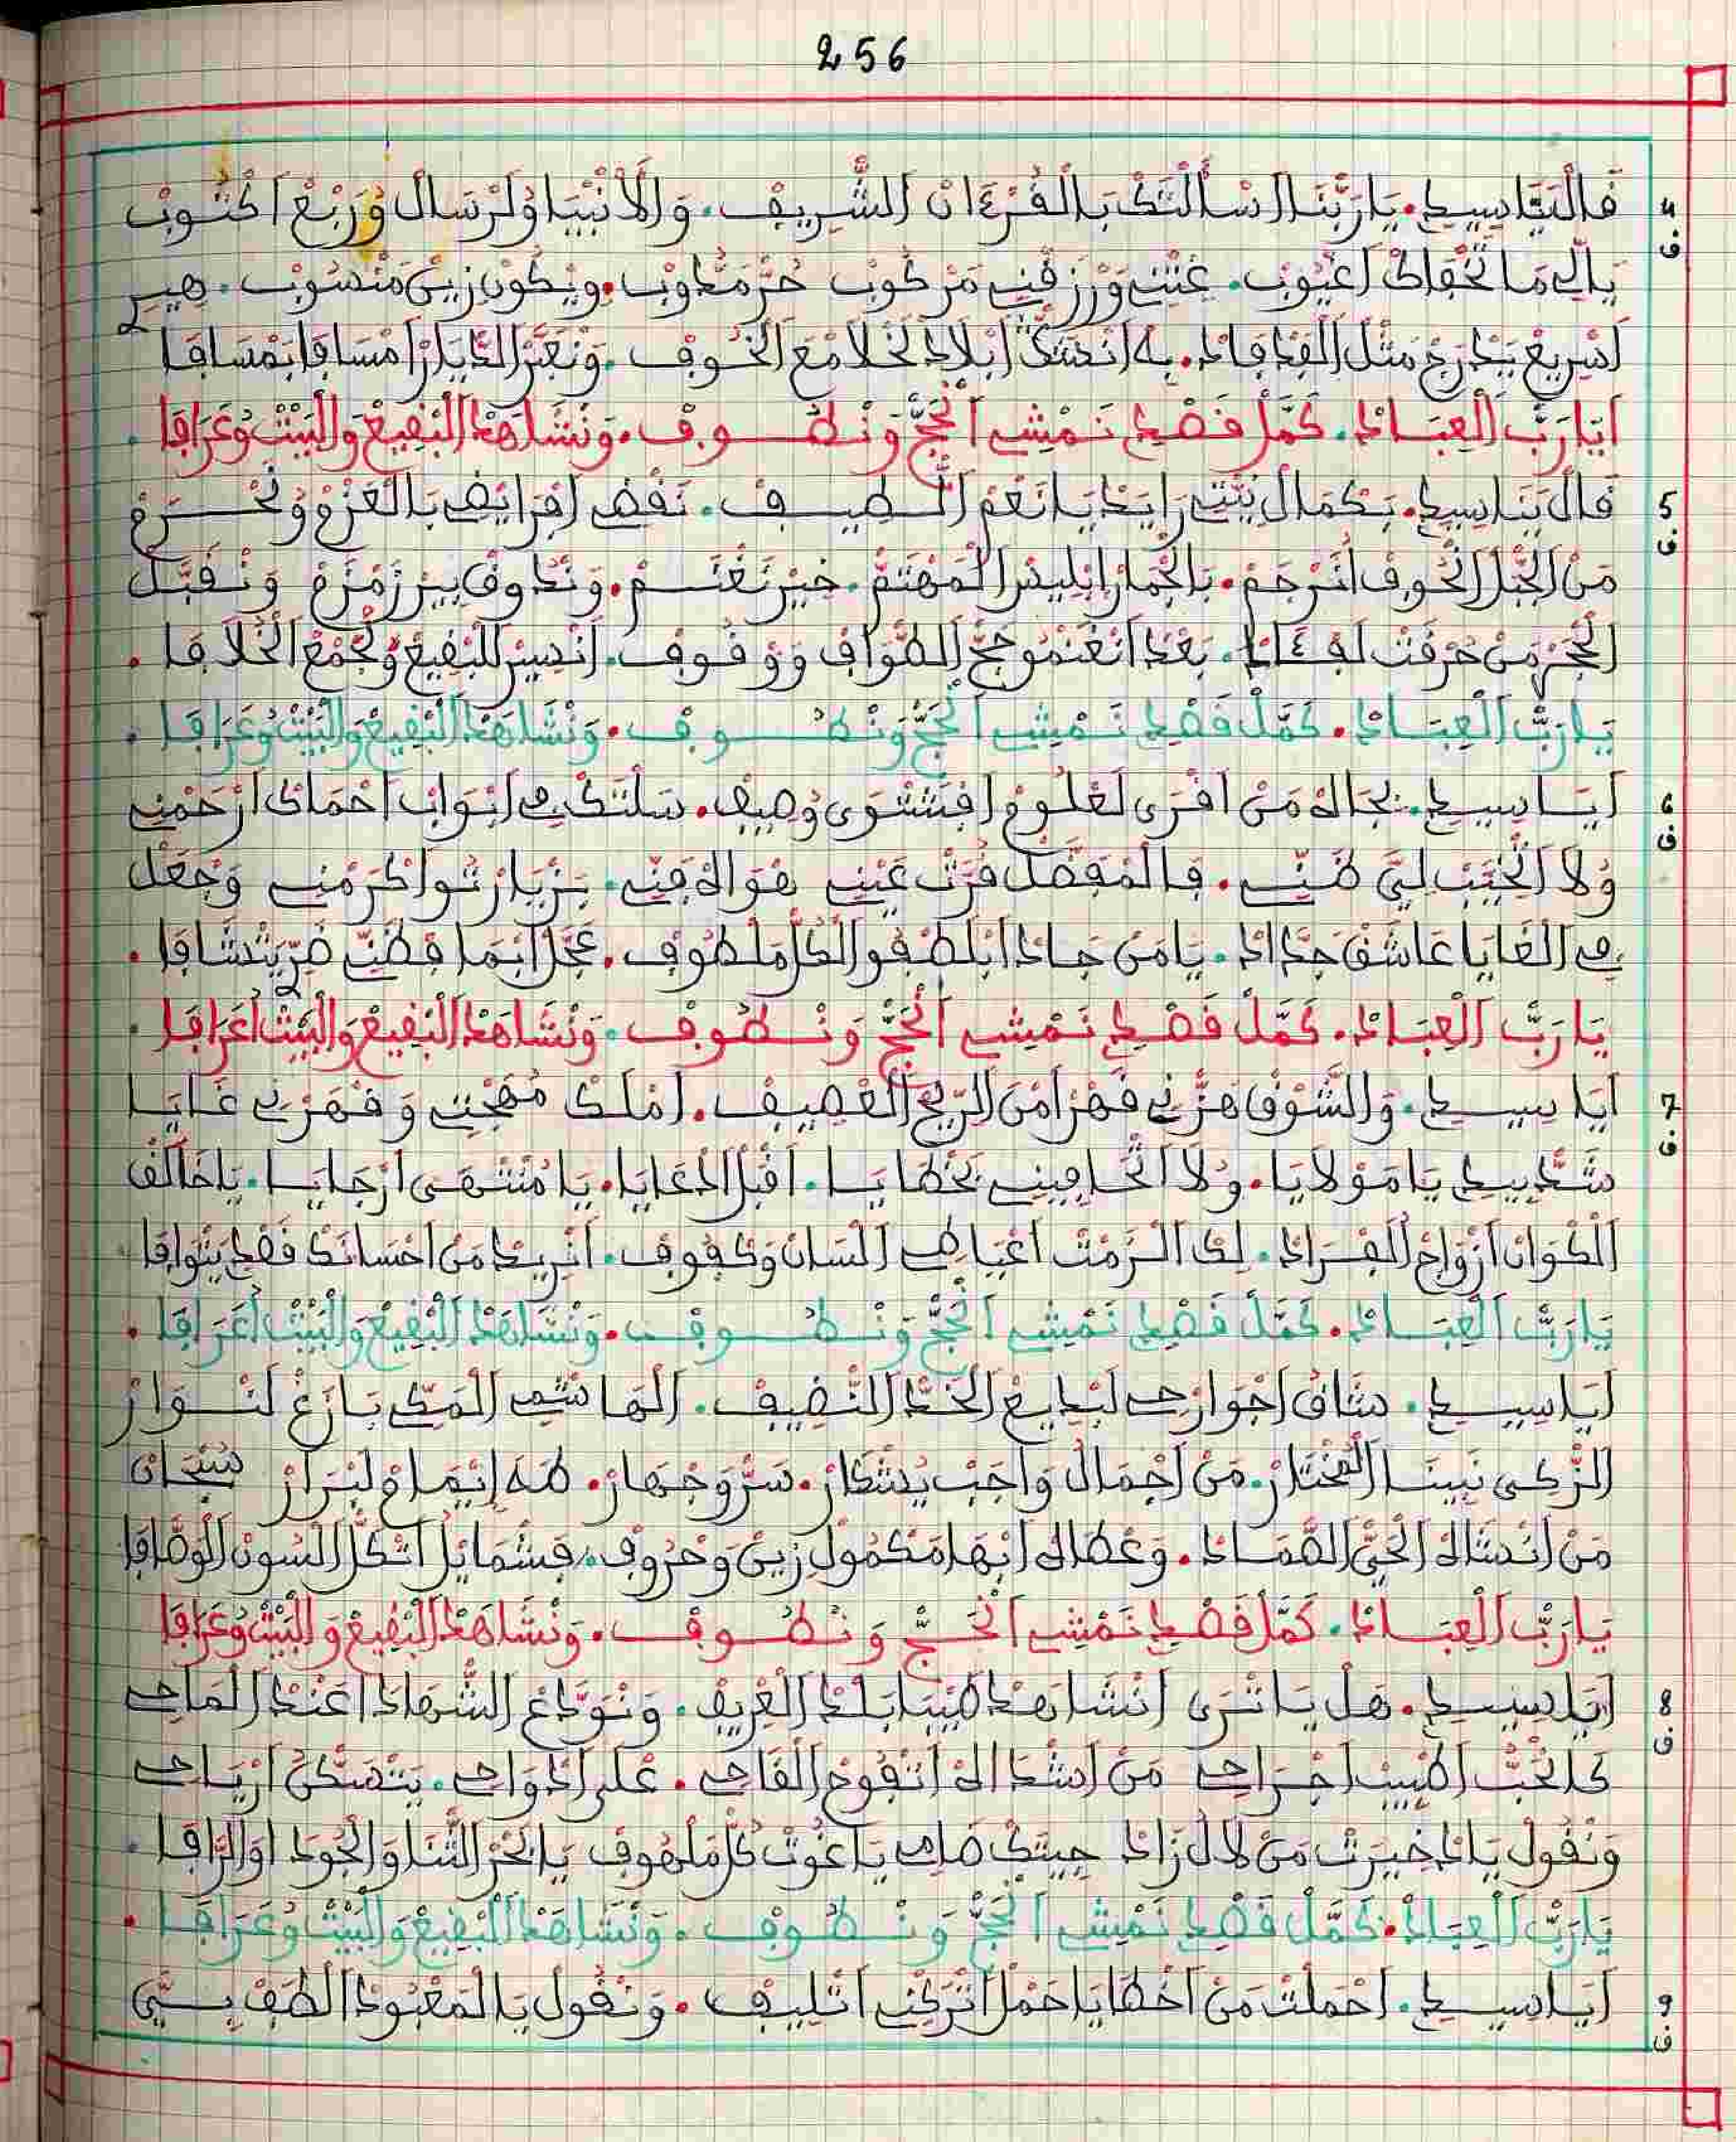 256
4 ف فَالْبَيَّاسِيدِ. يَارَبَّنَا اسْأَلْتَكْ بَالْقُرْءَانْ الشَّرِيفْ. وَالَانْبْيَا وُلَرْسَالْ وُرَبْعْ اَكْتُوبْ
يَالِي مَا تَخْفَاكْ اَعْيُوبْ. غِيتْنِي وَرْزَقْنِي مَرْكُوبْ حُرّْ مَدُّوبْ. وِيكُونْ زِينْ مَنْسُوبْ. هِيرِ
اَسْرِيعْ يَدْرَجْ مَثْلْ الْفَدْفَادْ. بِهْ اَنْشَقّْ اَبْلَادْ لَخْلَا مْعَ الْخُوفْ. وَنْعَبَّرْ الدّْيَارْ اَمْسَافَا بَمْسَافَا
اَيَارَبّْ الْعِبَادْ. كَمَّلْ قَصْدِي نَمْشِي اَلْحَجّْ وَنْطُوفْ. وَنْشَاهَدْ الْبْقِيعْ وَالْبَيْتْ وُعَرَافَا.
5 ف قَالْ يَتَاسِيدِ. بَكْمَالْ نِيّْتِي رَايَدْ يَا نَعْمَ اللَّطِيفْ. نَقْضِي اَفْرَايَضْ بَالْعَزْمْ وُنَحْرَمْ
مَنْ الْجْبَلْ الْخُوفْ اَنَرْجَمْ. بَالْجْمَارْ اِبْلِيسْ الْمَهْتَمْ. خِيرْ نَغْتَمْ. وَنْدَاوَقْ بِيرْ زَمْزَمْ وَنْقَبَّلْ
الْحْجَرْ مَنْ حُرْقَتْ لَفْئَادْ. بَعْدْ اَنْغَنْمُو حَجّْ الطّْوَافْ وَوْقُوفْ. اَنْسِيرْ لَلْبْقِيعْ وُنَجْمَعْ الْخْلَافَا.
يَارَبّْ الْعِبَادْ. كَمَّلْ قَصْدِي نَمْشِي اَلْحَجّْ وَنْطُوفْ. وَنْشَاهَدْ الْبْقِيعْ وَالْبَيْتْ وُعَرَافَا.
6 ف اَيَاسِيدِ. بَجَاهْ مَنْ اَقْرَى لَعْلُومْ اَفْتَشْوَى وُصِيفْ. سَلْتَكْ فِي اَبْوَابْ اَحْمَاكْ اَرْحَمْنِي
وُلَا اَتْخَيَّبْ لِيَّ ظَنِّي. فَالْمْفَضَّلْ قُرَّتْ عَيْنِي هْوَاهْ فَنِّي. بَزْيَارْتُو اَكْرَمْنِي وَجْعَلْ
فِي الْغَايَا عَاشَقْ جَدَّادْ. يَا مَنْ جَادْ اَبْلَطْفُو الْكُلّْ مَلْطُوفْ. عَجَّلْ اَبْمَا قْطَنِّي ضَرِّي يَتْشَافَا.
يَارَبّْ الْعِبَادْ. كَمَّلْ قَصْدِي نَمْشِي اَلْحَجّْ وَنْطُوفْ. وَنْشَاهَدْ الْبْقِيعْ وَالْبَيْتْ اُعَرَافَا.
7 ف اَيَا سِيدِ. وَالشَّوْقْ هَزّْنِي قَهْرْ اَمْنَ الرِّيحْ الْعْصِيفْ. اَمْلَكْ مُهْجْتِي وَقْهَرْنِي غَايَا
شَدِيدْ يَا مَوْلَايَا. وُلَا اَتْحَافِينِي بَخْطَايَا. اَقْبَلْ ادْعَايَا. يَا مُنْتَهَى اَرْجَايَا. يَا خَالَقْ
الْكْوَانْ اَزْوَاجْ الْفْرَادْ. لِكْ اَلْزَمْتْ اَعْيَاطِي اَلْسَانْ وَكْفُوفْ. اَنْرِيدْ مَنْ اَحْسَانَكْ قَصْدِي يَتْوَافَا
يَارَبّْ الْعِبَادْ. كَمَّلْ قَصْدِي نَمْشِي اَلْحَجّْ وَنْطُوفْ. وَنْشَاهَدْ الْبْقِيعْ وَالْبَيْتْ اُعَرَافَا.
اَيَا سِيدِ. شَاقْ اَجْوَارْحِي لَبْدِيعْ الْخَدّْ النّْضِيفْ. الْهَاشْمِي الْمَكِّي بَازَغْ لَنْوَارْ
الزّْكِي نَبِينَا الْمُخْتَارْ. مَنْ اَجْمَالْ وَاجَبْ يُشْكَارْ. سَرّْ وَجْهَارْ. طَهَ اِيْمَامْ لَبْرَارْ سُبْحَانْ
مَنْ اَنْشَاهْ الْحَيّْ الصَّمَادْ. وَعْطَاهْ اَبْهَا مَكْمُولْ زِينْ وَحْرُوفْ. فَشْمَايَلْ اَتْكَلّْ اَلْسُونْ الْوَصَّافَا
يَارَبّْ الْعِبَادْ. كَمَّلْ قَصْدِي نَمْشِي اَلْحَجّْ وَنْطُوفْ. وَنْشَاهَدْ الْبْقِيعْ وَالْبَيْتْ وُعَرَافَا
8 ف اَيَا سِيدِ. هَلْ يَا تْرَى اَنْشَاهَدْ طَيْبَا بَلْدْ الْعْرِيفْ. وَنْوَدَّعْ الشّْهَادَا عَنْدْ الْمَاحِي
كَانْحَبّْ اَطْبِيبْ اَجْرَاحِي مَنْ اَشْدَاهْ اَتْفُوحْ الْقَاحِي. عْلَى اَدْوَاحِي. يَتْمَسَّكْ اَرْيَاحِي
وَنْقُولْ يَا دْخِيرَتْ مَنْ لَالْ زَادْ جِيتَكْ ضَايَفْ يَا غُوتْ كُلّْ مَلْهُوفْ يَا بْحَرْ الثّْنَا وَالْجُودْ اُوَالرَّافَا.
يَارَبّْ الْعِبَادْ. كَمَّلْ قَصْدِي نَمْشِي اَلْحَجّْ وَنْطُوفْ. وَنْشَاهَدْ الْبْقِيعْ وَالْبَيْتْ وُعَرَافَا.
9 ف اَيَا سِيدِ. اَحْمَلْتْ مَنْ اَخْطَايَا حَمْلْ اَتْرَكْنِي اَتْلِيفْ. وَنْقُولْ يَا الْمَعْبُودْ الْطَفْ بِيَّ